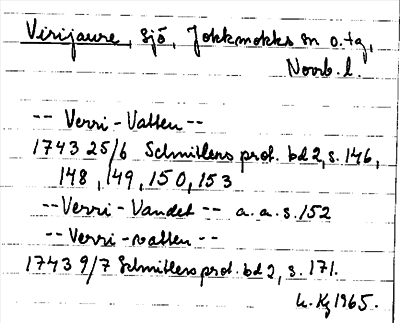 Virijaure, sjö, Jokkmokks sn o. tg,
Norrb. l.
-- Verri-Vatten --
1743 25/6 Schnitlers prot. bd 2, s. 146,
148, 149, 150, 153
-- Verri-Vandet -- a.a.s. 152
-- Verri-vatten --
1743 9/7 Schnitlers prot. bd 2, s. 171.
1965.